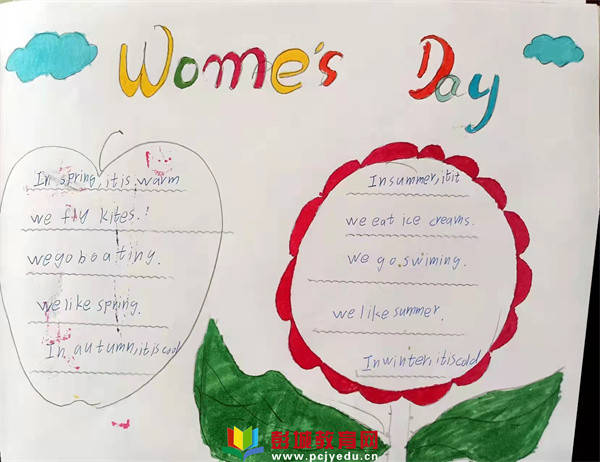 Wome's Day
In spring, it is warm
we fly kites.
we go boatiny.
we like spring.
In autumn, it is cod
In summer, it it
we eat ice creams.
we go swiming.
we like summer.
In winter, it is cold
彭博教育网
www.pcjyedu.cn